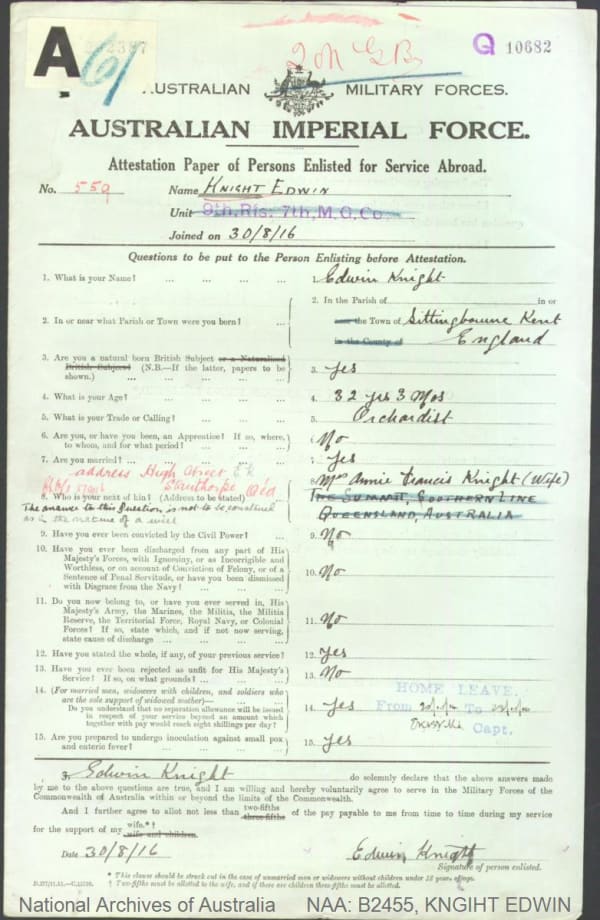 A
61
Q 10682
AUSTRALIAN MILITARY FORCES.
AUSTRALIAN IMPERIAL FORCE.
Attestation Paper of Persons Enlisted for Service Abroad.
No. 559 Name KNIGHT EDWIN
Unit 9th. Rfs: 7th, M.G. Co.
Joined on 30/8/16
Questions to be put to the Person Enlisting before Attestation.
1. What is your Name? ... ... 1. Edwin Knight
2. In or near what Parish or Town were you born? ... 2. In the Parish of in or
near the Town of Sittingbourne Kent
in the County of England
3. Are you a natural born British Subject or a Naturalized
British Subject? (N.B.—If the latter, papers to be
shown.) ... ... ... ... 3. Yes
4. What is your Age? ... ... ... 4. 32 yrs 3 Mos
5. What is your Trade or Calling? ... ... 5. Orchardist
6. Are you, or have you been, an Apprentice? If so, where,
to whom, and for what period? ... ... 6. No
7. Are you married? ... ... ... 7. Yes
address High Street
Stanthorpe Qld
8. Who is your next of kin? (Address to be stated) 8. Mrs Annie Francis Knight (Wife)
THE SUMMIT, SOUTHERN LINE
QUEENSLAND, AUSTRALIA
The answer to this question is not to be construed
as in the nature of a will
9. Have you ever been convicted by the Civil Power? ... 9. No
10. Have you ever been discharged from any part of His
Majesty's Forces, with Ignominy, or as Incorrigible and
Worthless, or on account of Conviction of Felony, or of a
Sentence of Penal Servitude, or have you been dismissed
with Disgrace from the Navy? ... ... 10. No
11. Do you now belong to, or have you ever served in, His
Majesty's Army, the Marines, the Militia, the Militia
Reserve, the Territorial Force, Royal Navy, or Colonial
Forces? If so, state which, and if not now serving,
state cause of discharge ... ... ... 11. No
12. Have you stated the whole, if any, of your previous service? 12. Yes
13. Have you ever been rejected as unfit for His Majesty's
Service? If so, on what grounds? ... ... 13. No
14. (For married men, widowers with children, and soldiers who
are the sole support of widowed mother)—
Do you understand that no separation allowance will be issued
in respect of your service beyond an amount which
together with pay would reach eight shillings per day? 14. Yes
HOME LEAVE.
From To
Capt.
15. Are you prepared to undergo inoculation against small pox
and enteric fever? ... ... ... 15. Yes
I, Edwin Knight do solemnly declare that the above answers made
by me to the above questions are true, and I am willing and hereby voluntarily agree to serve in the Military Forces of the
Commonwealth of Australia within or beyond the limits of the Commonwealth.
And I further agree to allot not less than two-fifths three-fifths of the pay payable to me from time to time during my service
for the support of my wife.*† wife and children.
Date 30/8/16 Edwin Knight
Signature of person enlisted.
* This clause should be struck out in the case of unmarried men or widowers without children under 18 years of age.
† Two-fifths must be allotted to the wife, and if there are children three-fifths must be allotted.
National Archives of Australia NAA: B2455, KNGIHT EDWIN